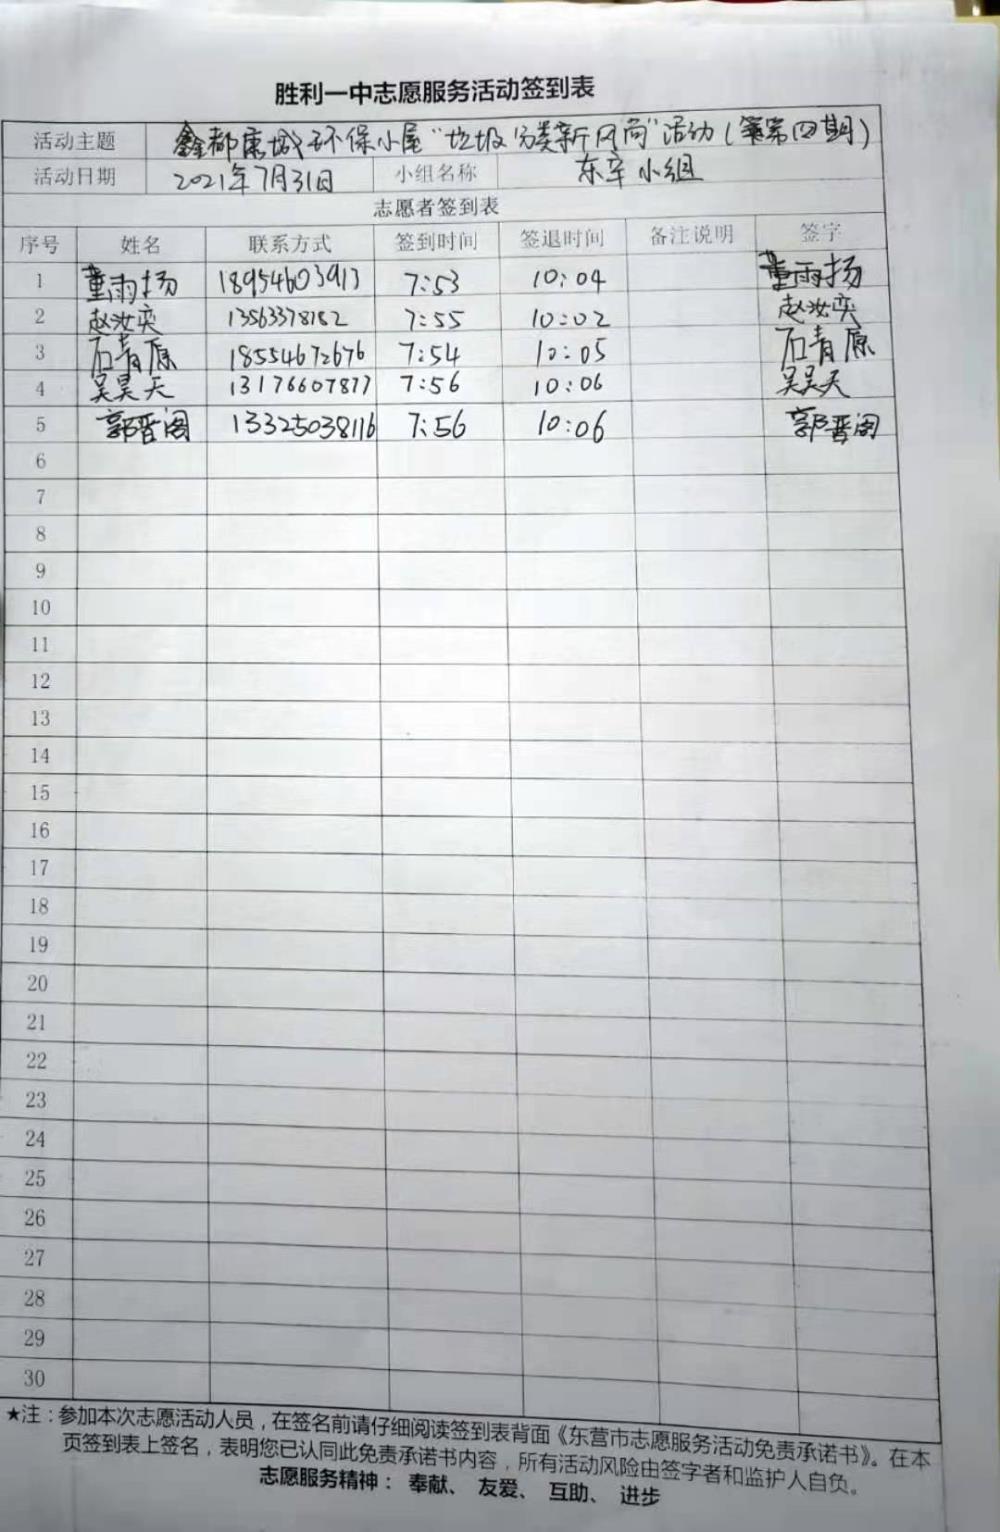 胜利一中志愿服务活动签到表
活动主题 鑫都康城环保小屋“垃圾分类新风尚”活动(第四期)
活动日期 2021年7月31日 小组名称 东辛小组
志愿者签到表
序号 姓名 联系方式 签到时间 签退时间 备注说明 签字
1 董雨扬 18954603913 7:53 10:04 董雨扬
2 赵汝奕 13563378182 7:55 10:02 赵汝奕
3 石青原 18554672676 7:54 10:05 石青原
4 吴昊天 13176607877 7:56 10:06 吴昊天
5 郭晋阁 13325038116 7:56 10:06 郭晋阁
6
7
8
9
10
11
12
13
14
15
16
17
18
19
20
21
22
23
24
25
26
27
28
29
30
★注：参加本次志愿活动人员，在签名前请仔细阅读签到表背面《东营市志愿服务活动免责承诺书》。在本
页签到表上签名，表明您已认同此免责承诺书内容，所有活动风险由签字者和监护人自负。
志愿服务精神： 奉献、 友爱、 互助、 进步